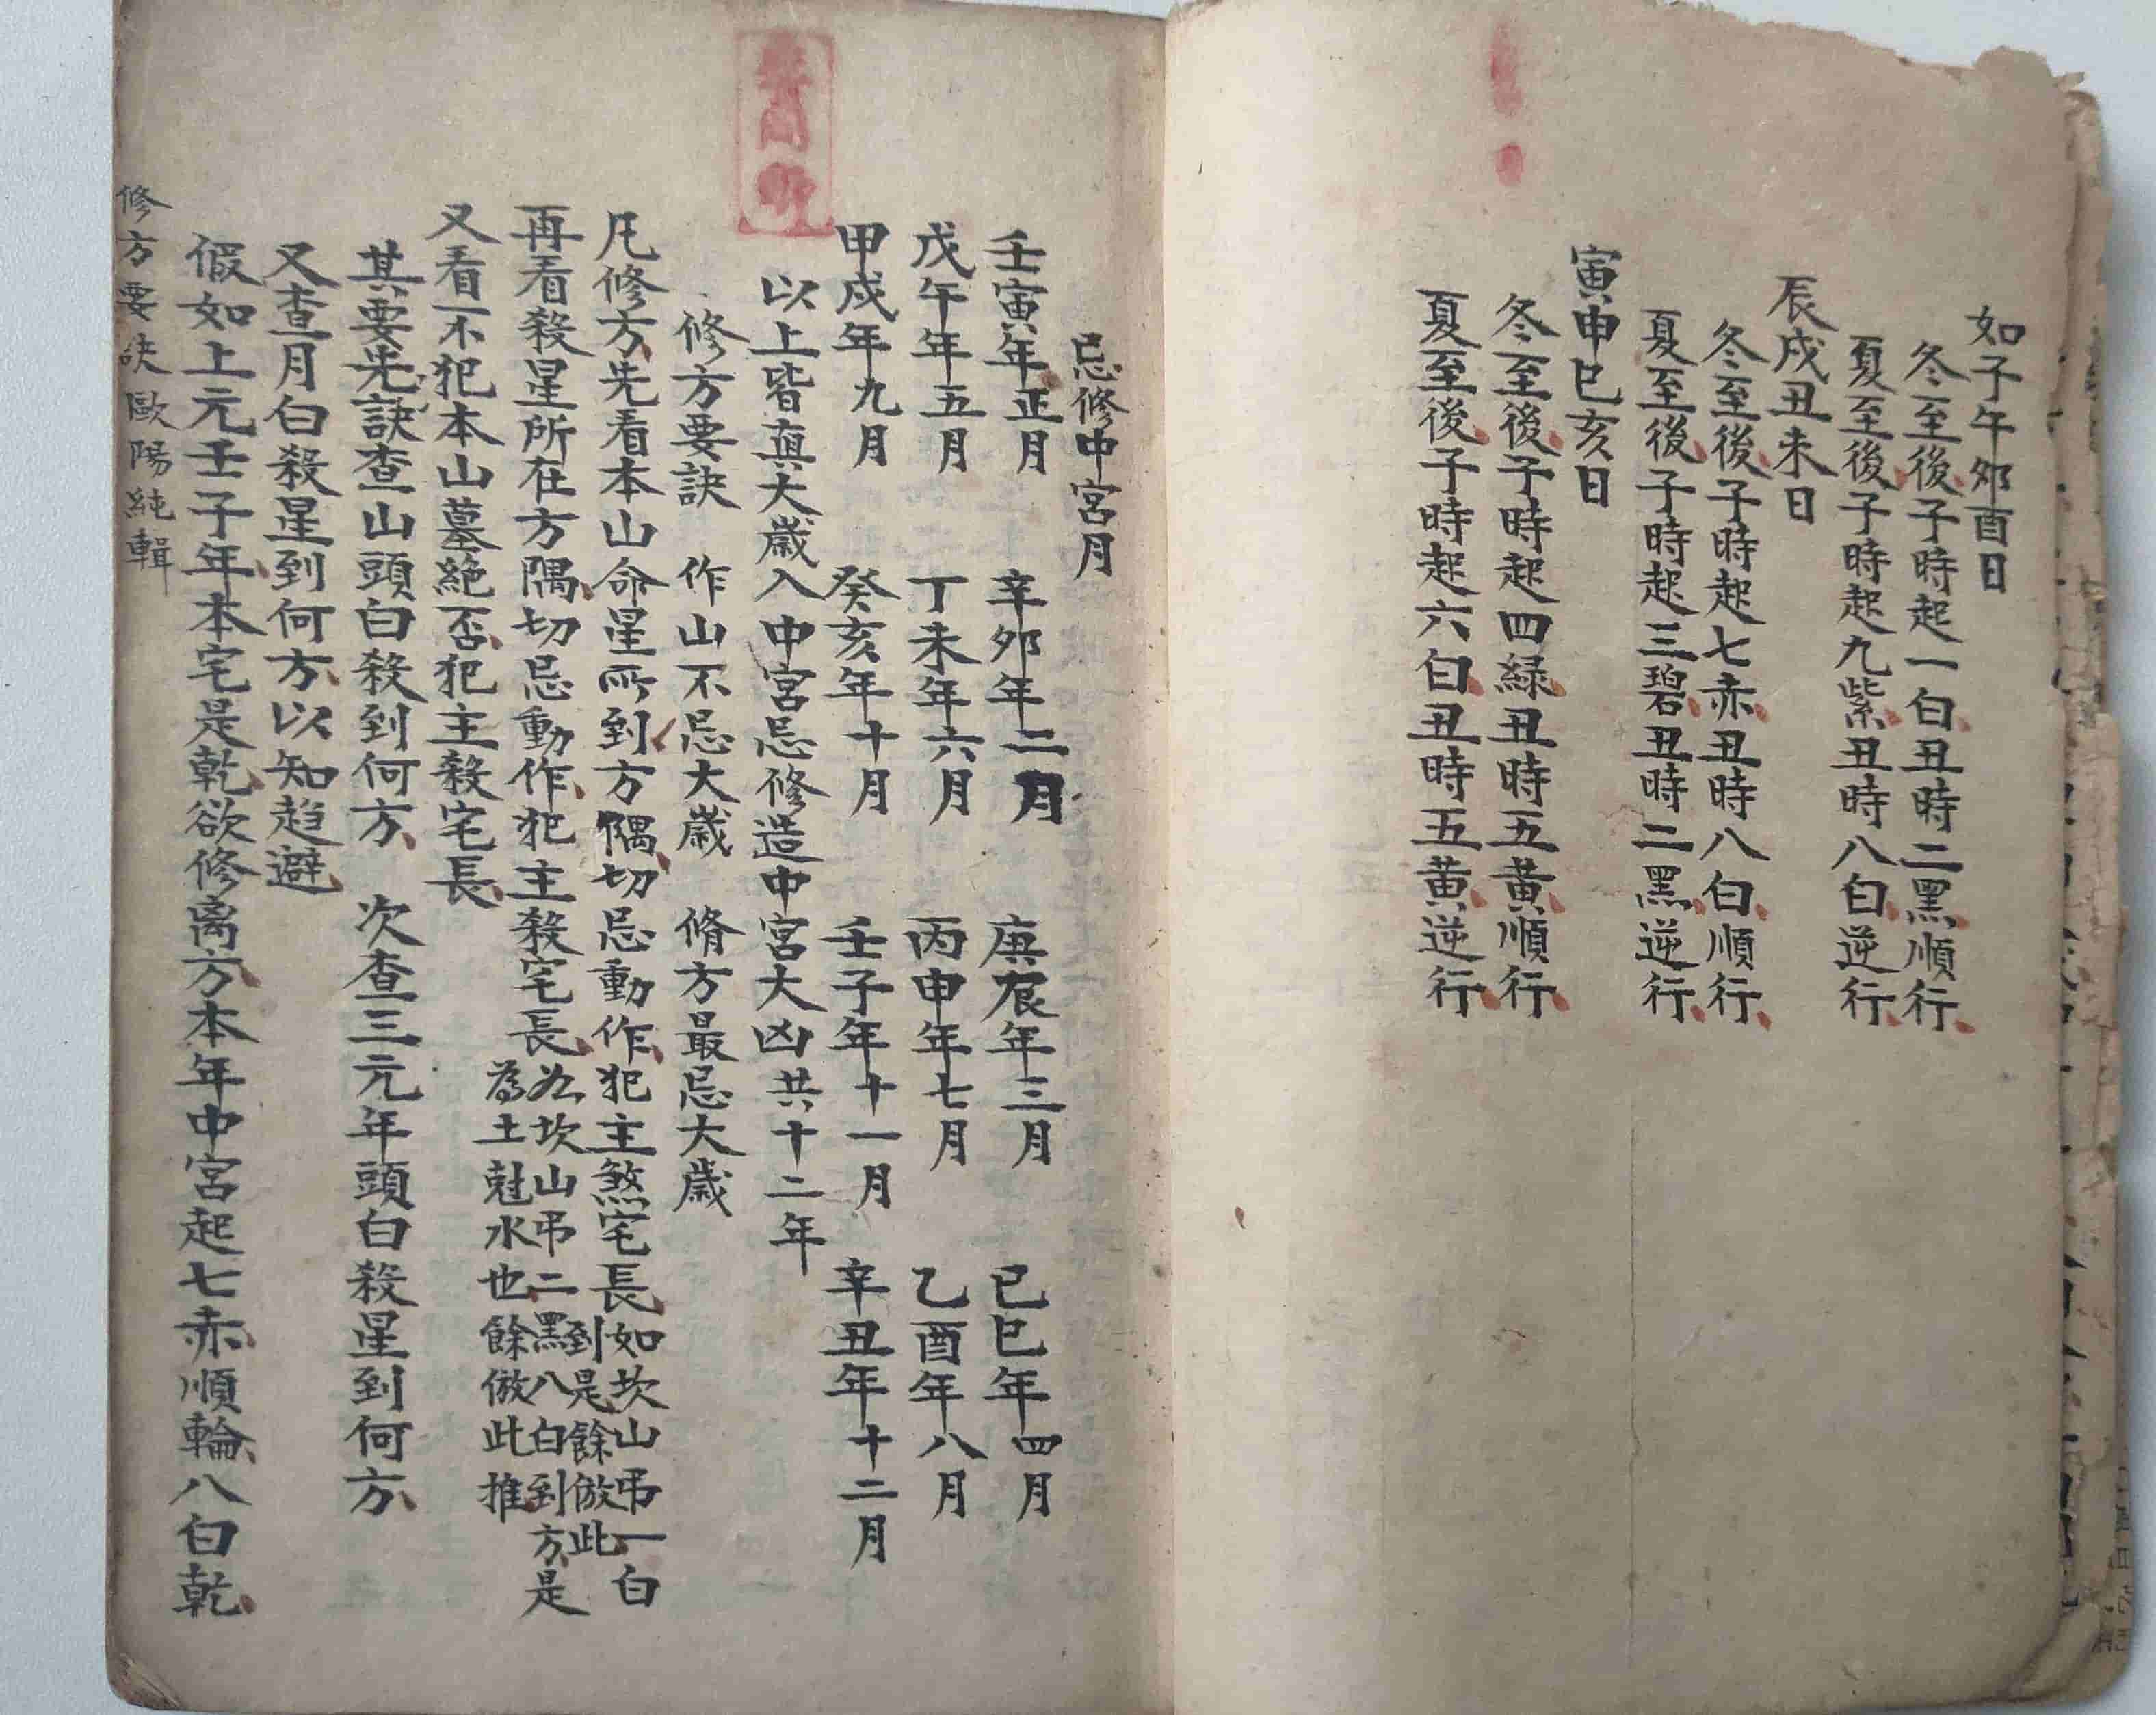 如子午夘酉日
冬至後子時起一白丑時二黑順行
夏至後子時起九紫丑時八白逆行
辰戌丑未日
冬至後子時起七赤丑時八白順行
夏至後子時起三碧丑時二黑逆行
寅申巳亥日
冬至後子時起四綠丑時五黃順行
夏至後子時起六白丑時五黃逆行
忌修中宮月
壬寅年正月 辛夘年二月 庚辰年三月 己巳年四月
戊午年五月 丁未年六月 丙申年七月 乙酉年八月
甲戌年九月 癸亥年十月 壬子年十一月 辛丑年十二月
以上皆真大歲入中宮忌修造中宮大凶共十二年
修方要訣 作山不忌大歲 脩方最忌大歲
凡修方先看本山命星所到方隅切忌動作犯主煞宅長如坎山弔一白
到是餘倣此
再看殺星所在方隅切忌動作犯主殺宅長如坎山弔二黑八白到方是
為土尅水也餘倣此推
又看不犯本山墓絕否犯主殺宅長
其要先訣查山頭白殺到何方 次查三元年頭白殺星到何方
又查月白殺星到何方以知趋避
假如上元壬子年本宅是乾欲修离方本年中宮起七赤順輪八白乾
修方要訣歐陽純輯